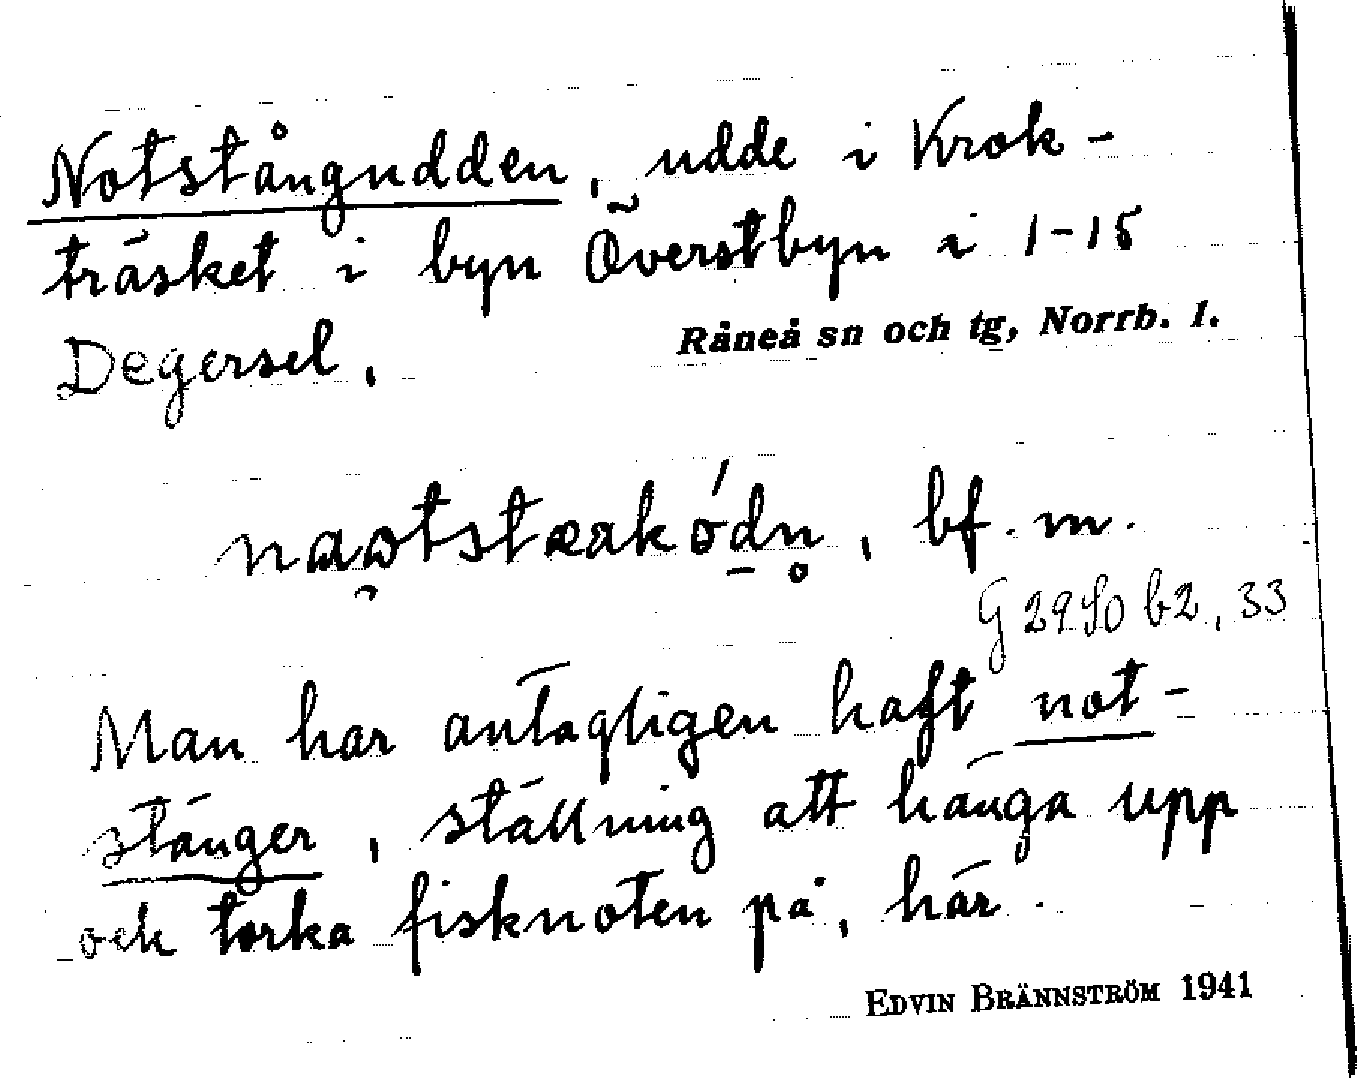 Notstångudden, udde i Krok-
träsket i byn Överstbyn i 1-15
Degersel.
Råneå sn och tg, Norrb. l.
bf. m.
G 2940 b2, 33
Man har antagligen haft not-
stänger, ställning att hänga upp
och torka fisknoten på, här.
EDVIN BRÄNNSTRÖM 1941